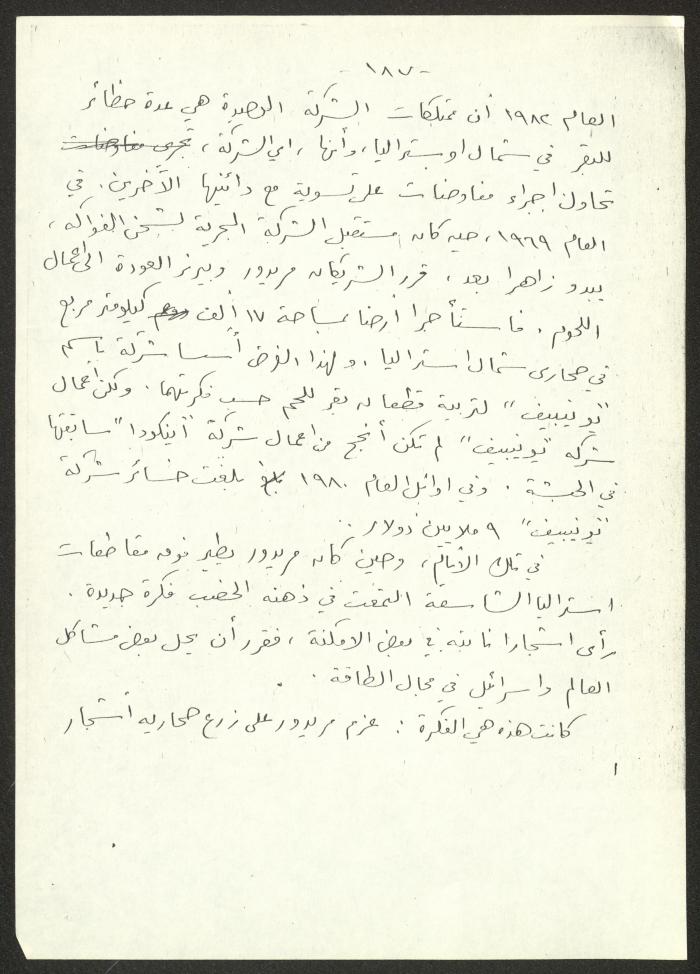 -١٨٧-
العام ١٩٨٢ أن ممتلكات الشركة الوحيدة هي عدة حظائر
للبقر في شمال اوستراليا، وأنها، اي الشركة، تجري مفاوضات
تحاول اجراء مفاوضات على تسوية مع دائنيها الآخرين. في
العام ١٩٦٩، حين كان مستقبل الشركة البحرية لشحن الفواكه،
يبدو زاهرا بعد، قرر الشريكان مريدور وبيرنز العودة الى اعمال
اللحوم. فاستأجرا أرضا بمساحة ١٧ ألف كيلومتر مربع
في صحارى شمال استراليا. ولهذا الغرض أسسا شركة باسم
"تونيبيف" لتربية قطعان بقر للحم حسب فكرتهما. ولكن اعمال
شركة "تونيبيف" لم تكن أنجح من اعمال شركة "اينكودا" سابقتها
في الحبشة. وفي اوائل العام ١٩٨٠ بلغت خسائر شركة
"تونيبيف" ٩ ملايين دولار..
في تلك الأيام، وحين كان مريدور يطير فوق مقاطعات
استراليا الشاسعة التمعت في ذهنه الخصب فكرة جديدة.
رأى اشجارا نابتة في بعض الامكنة، فقرر أن يحل بعض مشاكل
العالم واسرائيل في مجال الطاقة.
كانت هذه هي الفكرة: عزم مريدور على زرع صحاريه أشجار
ا